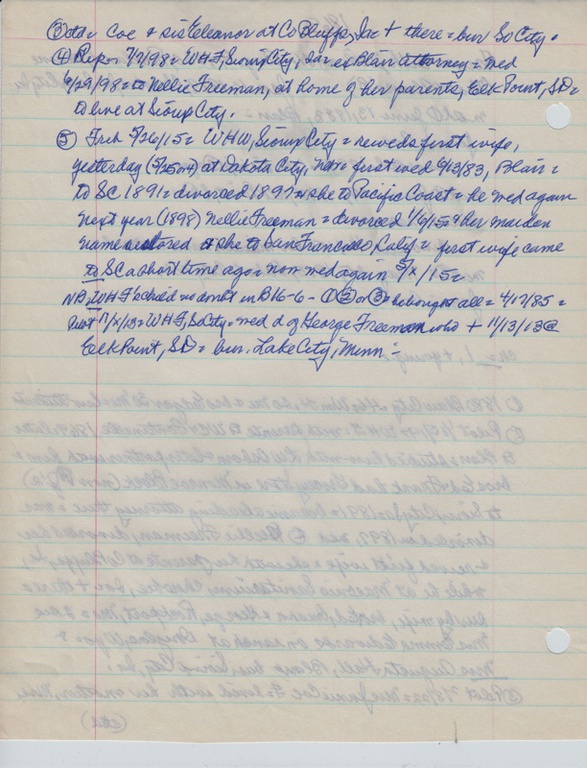 ③ ctd = Coe & sis Eleanor at Co Bluffs, Ia + there = bur So City.
④ Rep 7/7/98 = WHF, Sioux City, Ia, ex Blair attorney = wed
6/29/98 = to Nellie Freeman, at home of her parents, Elk Point, SD =
to live at Sioux City.
⑤ 5/26/15 = WHW, Sioux City = reweds first wife,
yesterday at Dakota City, first wed 4/13/83, Blair =
to SC 1891 = divorced 1897 & she to Pacific Coast = he wed again
next year (1898) Nellie Freeman = divorced & her maiden
name restored & she to San Francisco Calif = first wife came
to SC a short time ago = now wed again 5/x/15 =
NB: WHF he did no in B16-6 - ① ② or ③ = he bought all = 4/17/85 =
WHF, So City = wed d of George Freeman who + 11/13/13 @
Elk Point, SD = bur. Lake City, Minn =